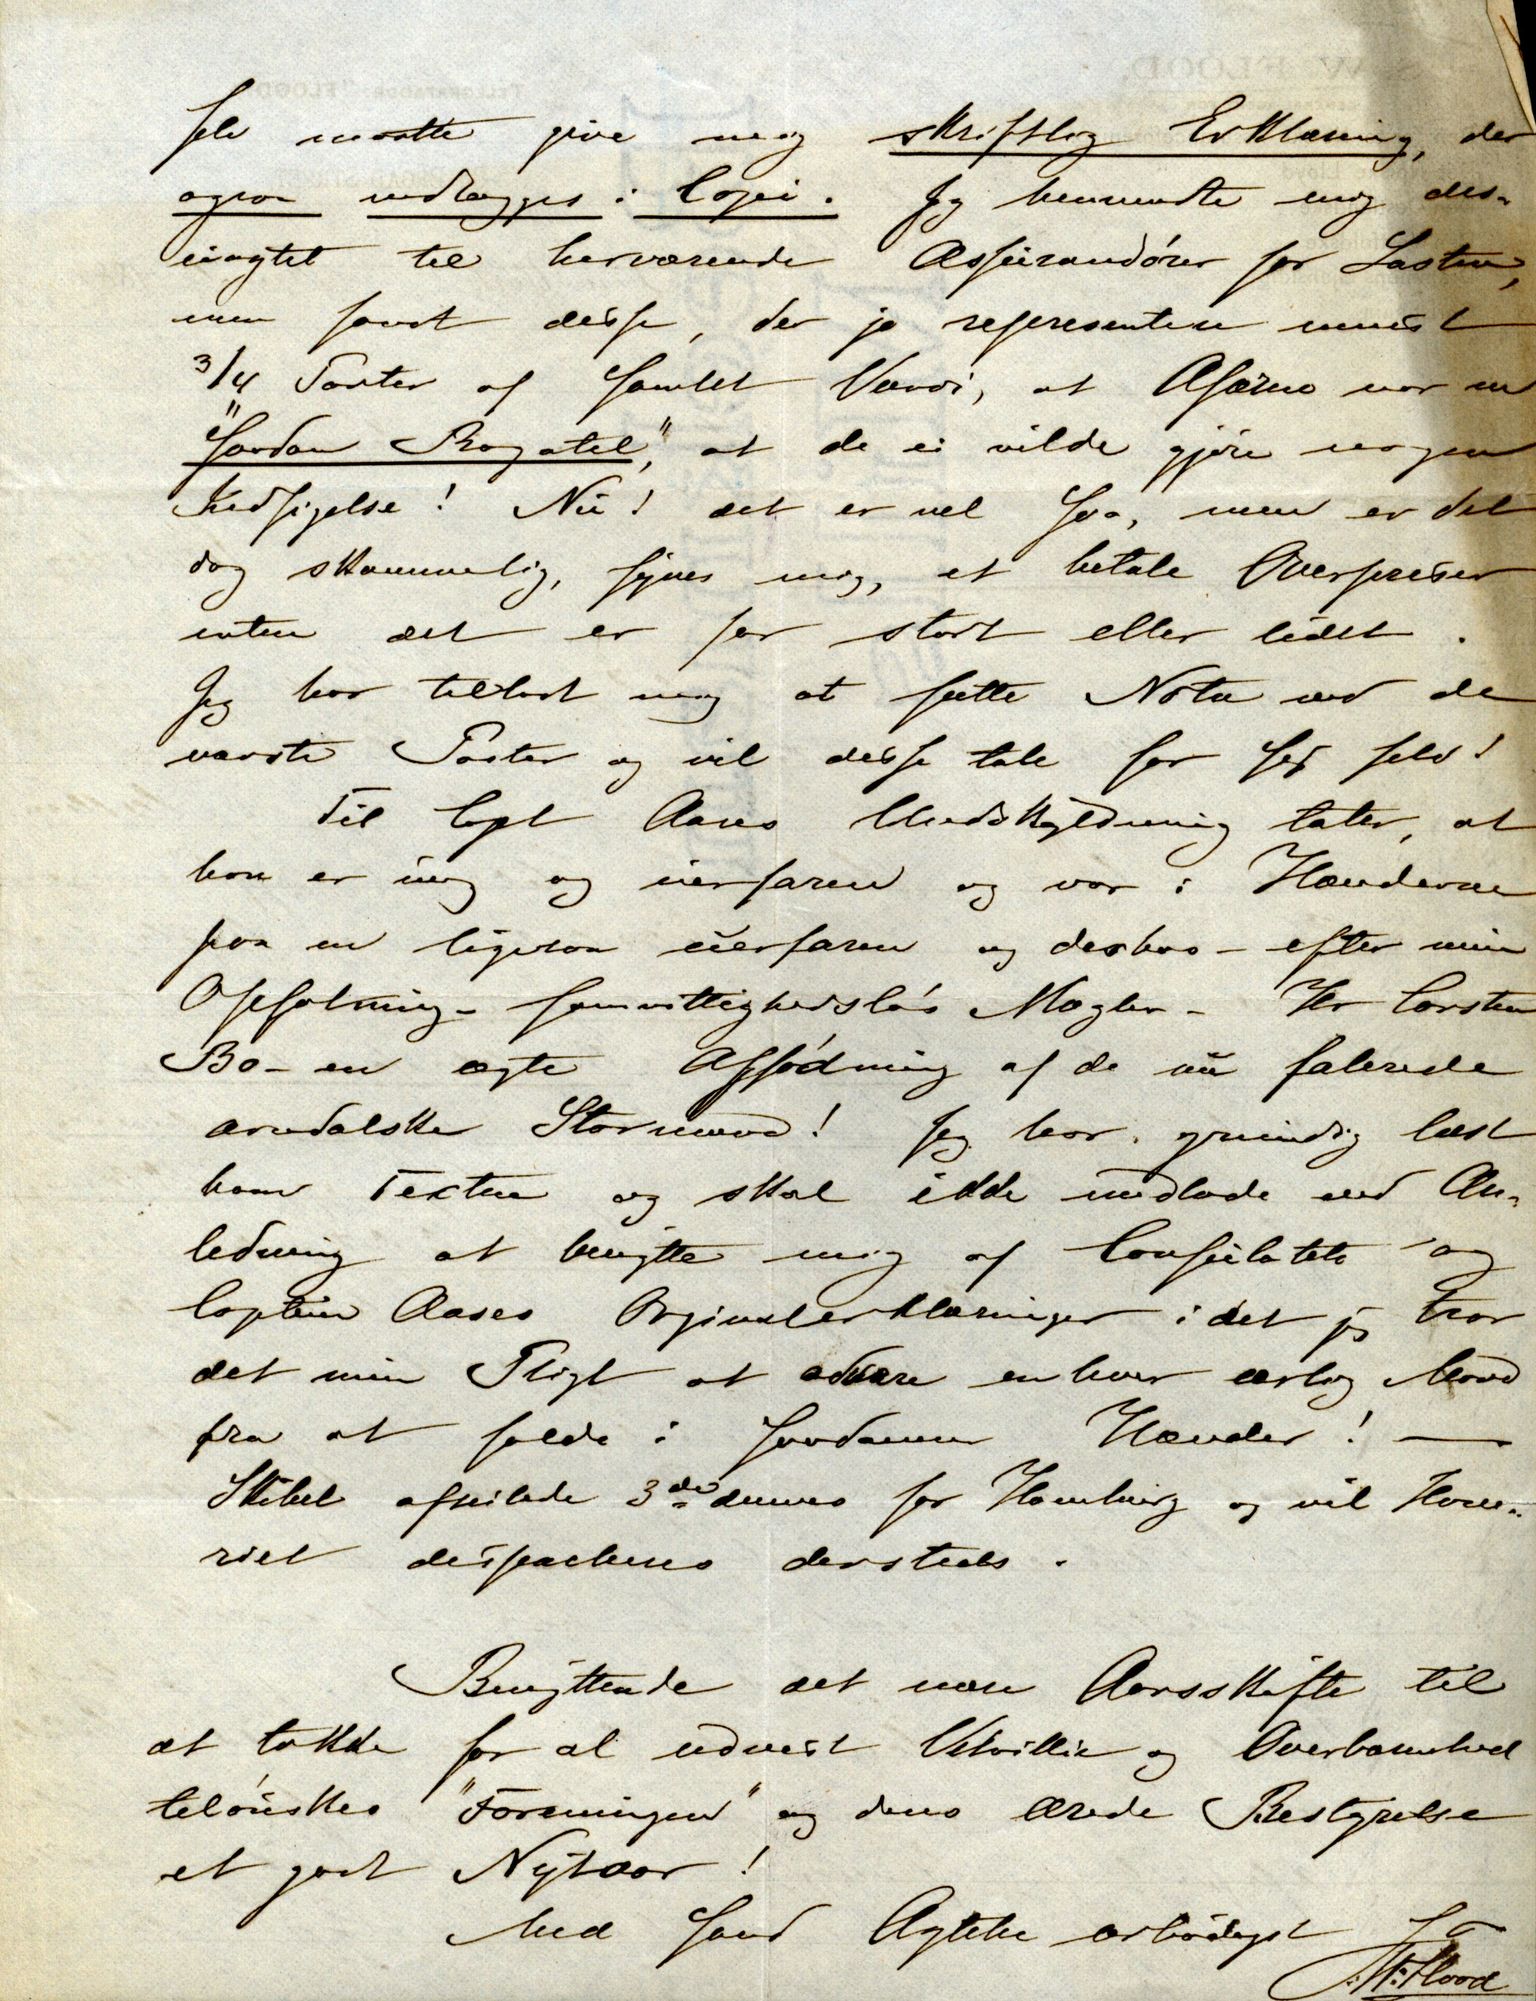 selv maatte give mig skriftlig Erklæring, der
ogsaa vedlægges i Copi. Jeg henvendte mig des-
uagtet til herværende Assurandører for Lasten,
men fandt disse, der jo representere mindst
3/4 Parter af samlet Værdi, at Affæren var en
"saadan Bagatel", at de ei vilde gjøre nogen
Indsigelse! Nu! det er vel saa, men er det
dog skammelig, synes mig, at betale Overpriser
enten det er for stort eller lidet.
Jeg har tilladt mig at sætte Nota ved de
værste Poster og vil disse tale for sig selv!
Til Capt Aases Undskyldning taler, at
han er ung og uerfaren og var i Hænderne
paa en ligesaa uerfaren og deshos - efter min
Opfatning - samvittighedsløs Mægler - Hr Carsten
Bo - en ægte Affødning af de nu falerede
arendalske Stormænd! Jeg har grundig læst
ham Texten og skal ikke undlade ved An-
ledning at benytte mig af Consulatets og
Captein Aases Orginalerklæringer idet jeg tror
det min Pligt at advare enhver ærlig Mand
fra at falde i saadanne Hænder! —
Skibet afseilede 3de dennes for Hamburg og vil Hava-
riet dispacheres dersteds.
Benyttende det nære Aarsskifte til
at takke for al udvist Velvillie og Overbærenhed
tilønskes "Foreningen" og dens ærede Bestyrelse
et godt Nytaar!
Med sand Agtelse ærbødigst
Flood